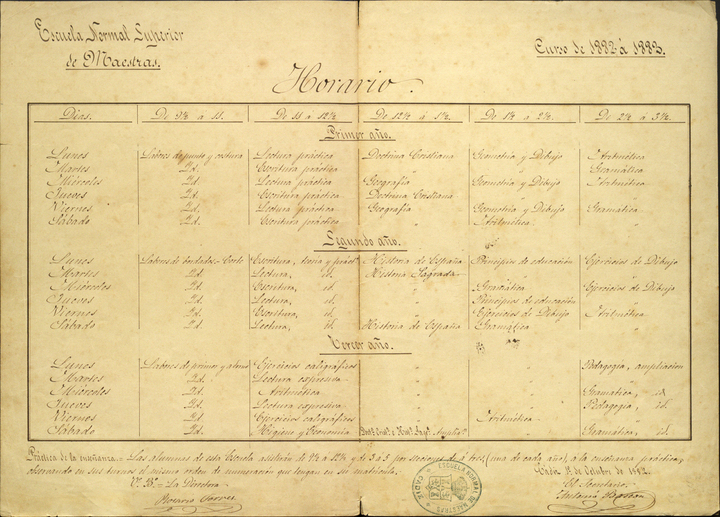 Escuela Normal Superior
de Maestras.
Curso de 1882 á 1883.
Horario.
Dias. De 9½ a 11. De 11 a 12½ De 12½ á 1½. De 1½ a 2½. De 2½ á 3½.
Primer año.
Lunes Labores de punto y costura Lectura práctica Doctrina Cristiana Geometría y Dibujo Aritmética
Martes Id. Escritura práctica " " Gramática
Miércoles Id. Lectura práctica Geografía Geometría y Dibujo Aritmética
Jueves Id. Escritura práctica Doctrina Cristiana " "
Viernes Id. Lectura práctica Geografía Geometría y Dibujo Gramática
Sábado Id. Escritura práctica " Aritmética "
Segundo año.
Lunes Labores de bordados - Corte Escritura, teoría y práct. Historia de España Principios de educación Ejercicios de Dibujo
Martes Id. Lectura, id. Historia Sagrada " "
Miércoles Id. Escritura, id. " Gramática Ejercicios de Dibujo
Jueves Id. Lectura, id. " Principios de educación "
Viernes Id. Escritura, id. " Ejercicios de Dibujo Aritmética
Sábado Id. Lectura, id. Historia de España Gramática "
Tercer año.
Lunes Labores de primor y aleno Ejercicios caligráficos " " Pedagogía, ampliacion
Martes Id. Lectura expresiva " " "
Miércoles Id. Aritmética " " Gramática, id
Jueves Id. Lectura expresiva " " Pedagogía, id.
Viernes Id. Ejercicios caligráficos " Aritmética "
Sábado Id. Higiene y Economía " Gramática, id
Práctica de la enseñanza.- Las alumnas de esta Escuela asistirán de 9½ a 12½ y de 3 a 5 por secciones de á tres, (una de cada año), a la enseñanza práctica,
observando en sus turnos el mismo orden de enumeración que tengan en su matrícula.
Cádiz 1º de Octubre de 1882
V.º B.º - La Directora
El Secretario
ESCUELA NORMAL DE MAESTRAS
CADIZ